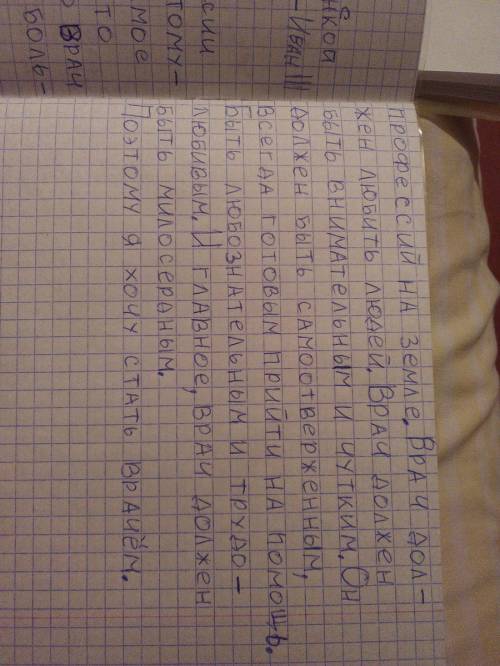 нкой
-Иван III
сии
тому-
мое
то
врач
боль-
профессий на земле. Врач дол-
жен любить людей. Врач должен
быть внимательным и чутким. Он
должен быть самоотверженным,
всегда готовым прийти на помощь.
Быть любознательным и трудо-
любивым. И главное, врач должен
быть милосердным.
Поэтому я хочу стать врачём.